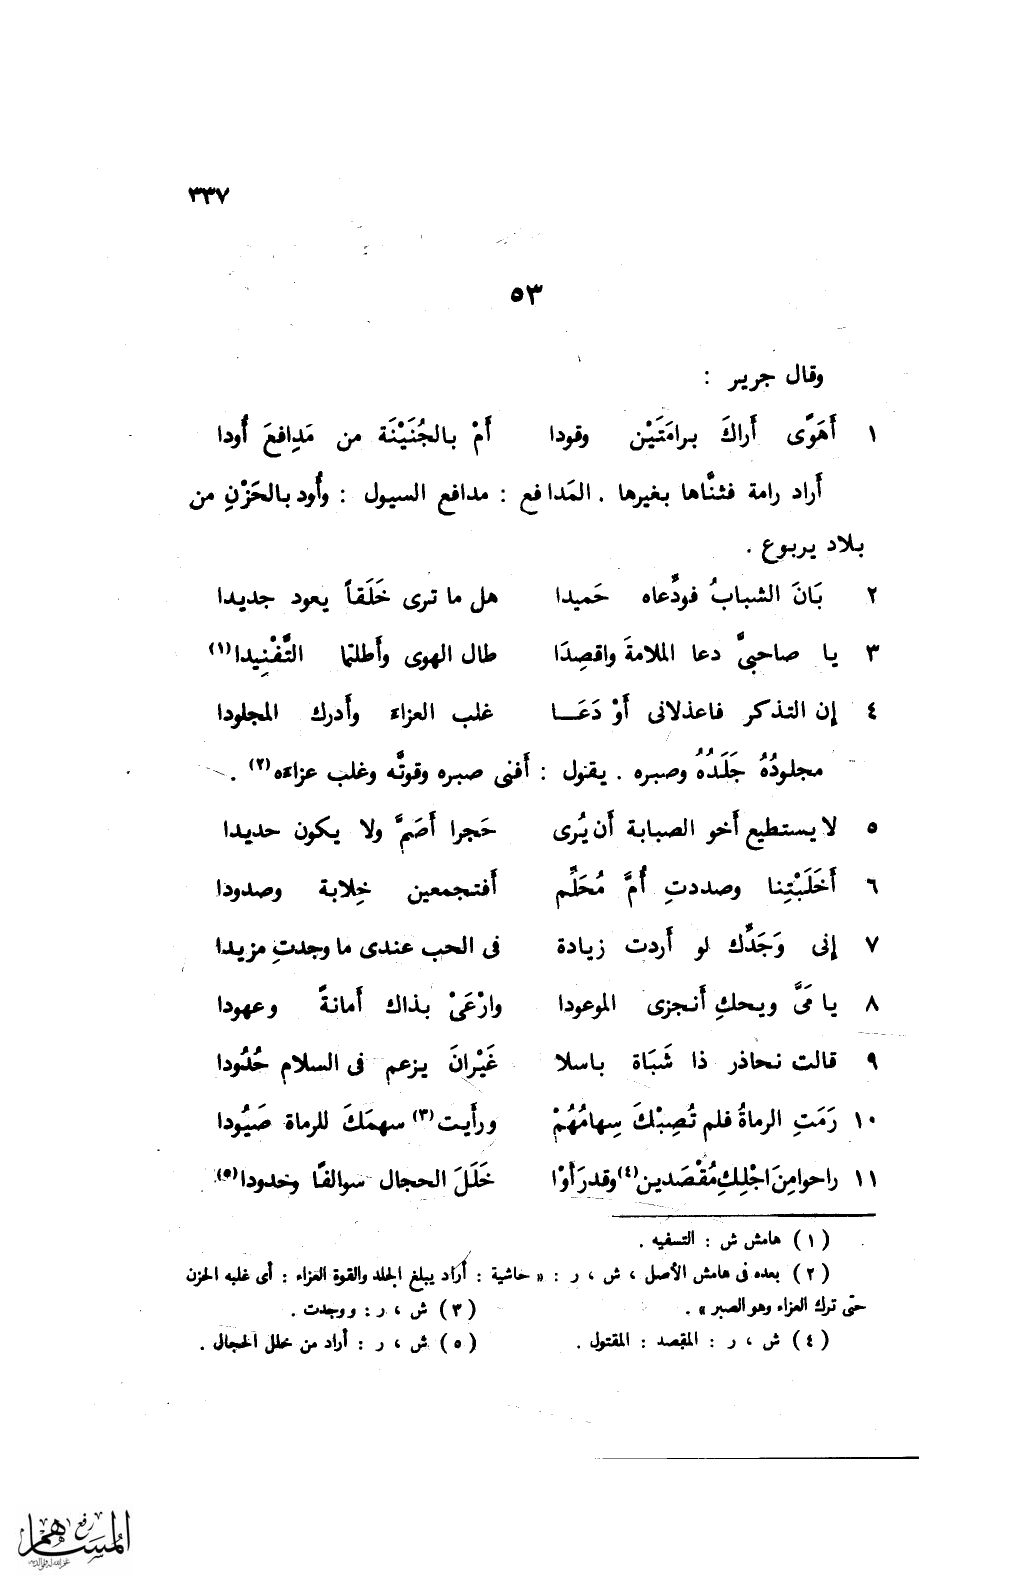 ٣٣٧
٥٣
وقال جرير :
١ أَهَوًى أَراكَ برامَتَيْن وقودا أَمْ بالجُنَيْنَة من مَدافعَ أُودا
أراد رامة فثنَّاها بغيرها . المَدافع : مدافع السيول : وأُود بالحَزْنِ من
بلاد يربوع .
٢ بَانَ الشبابُ فودِّعاه حَميدا هل ما ترى خَلَقاً يعود جديدا
٣ يا صاحبيَّ دعا الملامةَ واقصِدَا طال الهوى وأَطلتما التَّفْنِيدا(١)
٤ إن التذكر فاعذلانى أَوْ دَعَــا غلب العزاءَ وأَدرك المجلودا
مجلودُهُ جَلَدُهُ وصبره . يقول : أَفنى صبره وقوتَّه وغلب عزاءه(٢) .
٥ لا يستطيع أَخو الصبابة أَن يُرى حَجرا أَصَمَّ ولا يكون حديدا
٦ أَخَلَبْتِنا وصددتِ أُمَّ مُحَلِّم أَفتجمعين خِلابة وصدودا
٧ إنى وَجَدِّك لو أَردت زيادة فى الحب عندى ما وجدتِ مزيدا
٨ يا مَىَّ ويحكِ أَنجزى الموعودا وارْعَىْ بذاك أَمانةً وعهودا
٩ قالت نحاذر ذا شَبَاة باسلا غَيْرانَ يزعم فى السلام حُدُودا
١٠ رَمَتِ الرماةُ فلم تُصِبْكَ سِهامُهُمْ ورأَيت(٣) سهمَكَ للرماة صَيُودا
١١ راحوا مِنَ اجْلِكِ مُقْصَدين(٤) وقد رَأَوْا خَلَلَ الحجال سوالفًا وخدودا(٥)
(١) هامش ش : التسفيه .
(٢) بعده فى هامش الأصل ، ش ، ر : « حاشية : أراد يبلغ الجلد والقوة العزاء : أى غلبه الحزن
حتى ترك العزاء وهو الصبر » . (٣) ش ، ر : ووجدت .
(٤) ش ، ر : المقصد : المقتول . (٥) ش ، ر : أراد من خلل الحجال .